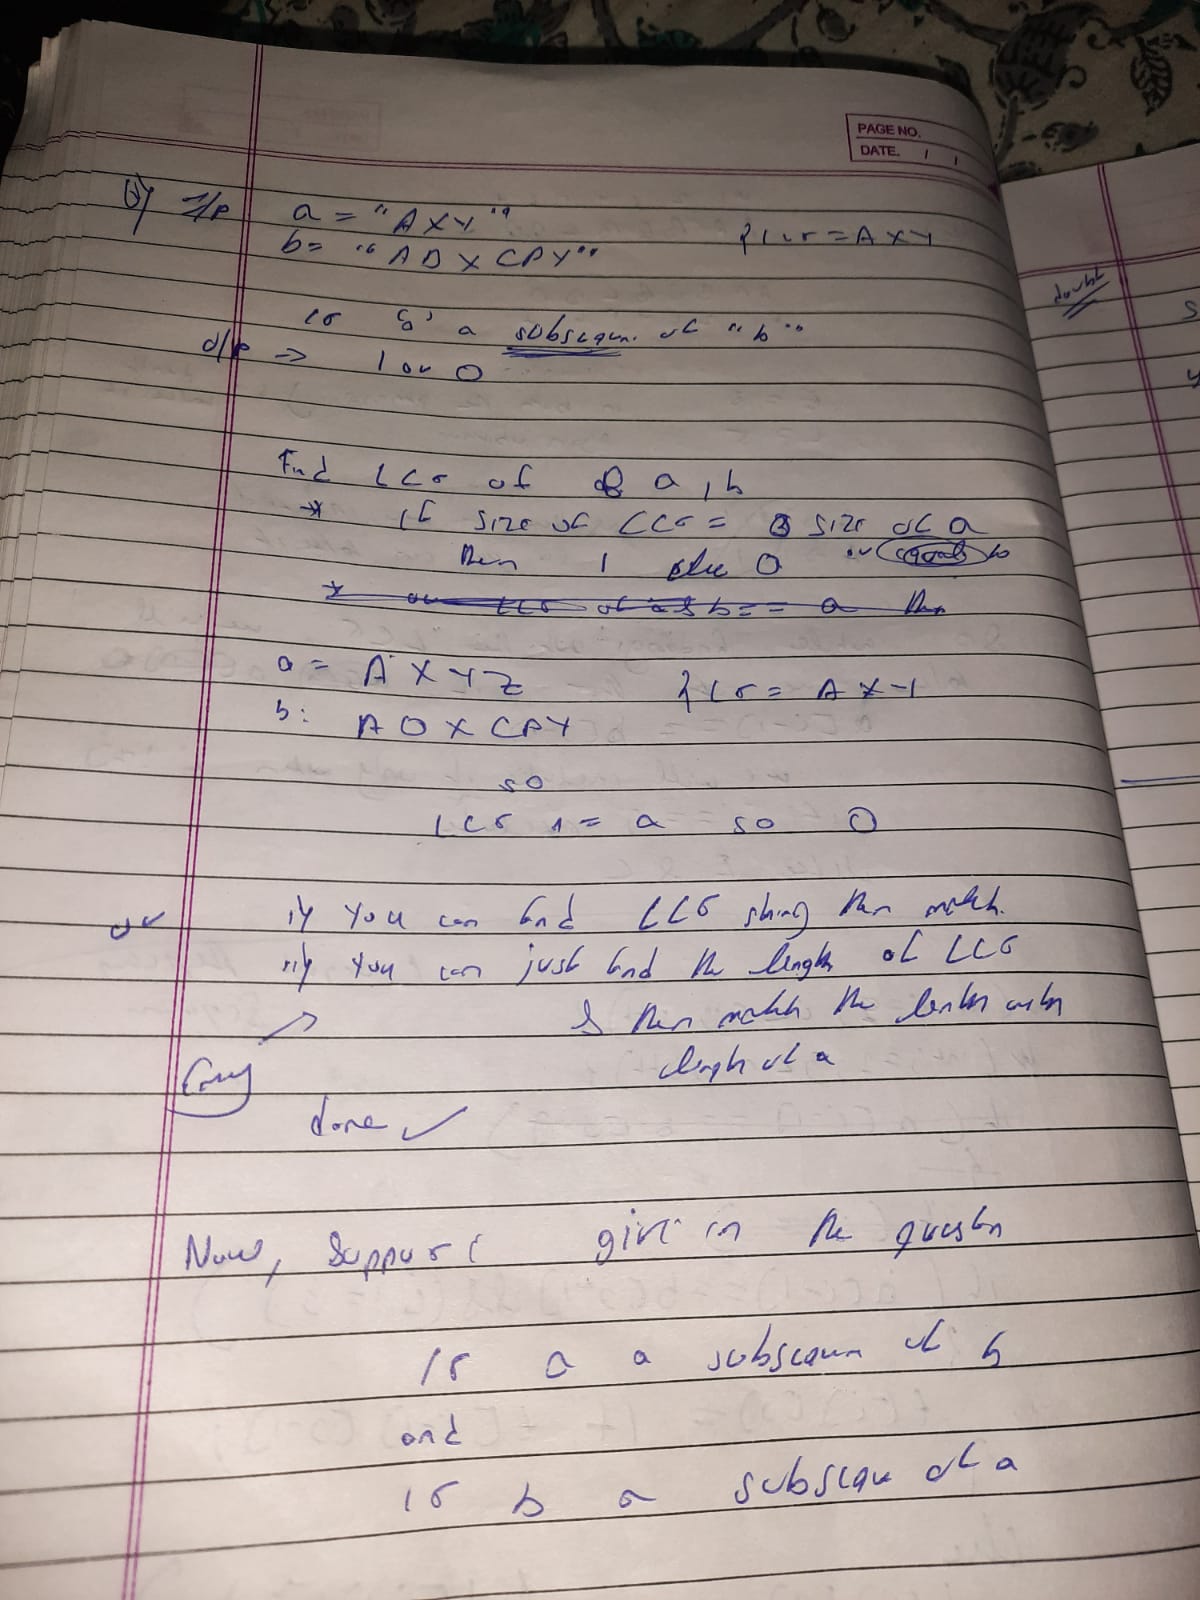 PAGE NO.
DATE. / /
I/P a = "AXY"
b = "ADXCPY" LCS = AXY
doubt
is 'a' a subsequn. of "b"
O/P => 1 or 0
Find LCS of a, b
* if size of LCS = size of a
then 1 else 0 or equal to
* or LCS of a & b == a then
a = AXYZ LCS = AXY
b: ADXCPY
so
LCS != a so 0
or i) you can find LCS string then match.
ii) you can just find the length of LCS
& then match the with
length of a
Easy
done ✓
Now, suppose given in the
is a a of b
and
is b a of a